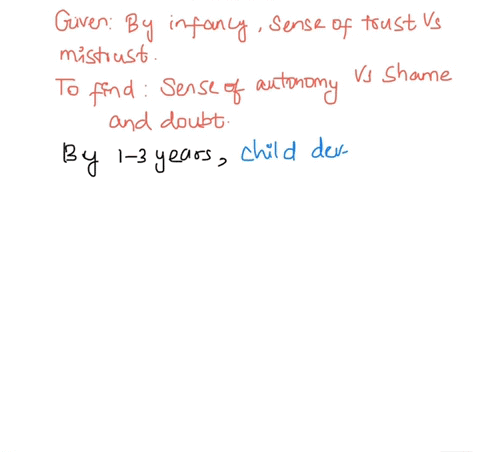 Given: By infancy, Sense of trust Vs
mistrust.
To find: Sense of autonomy Vs Shame
and doubt.
By 1-3 years, child dev-